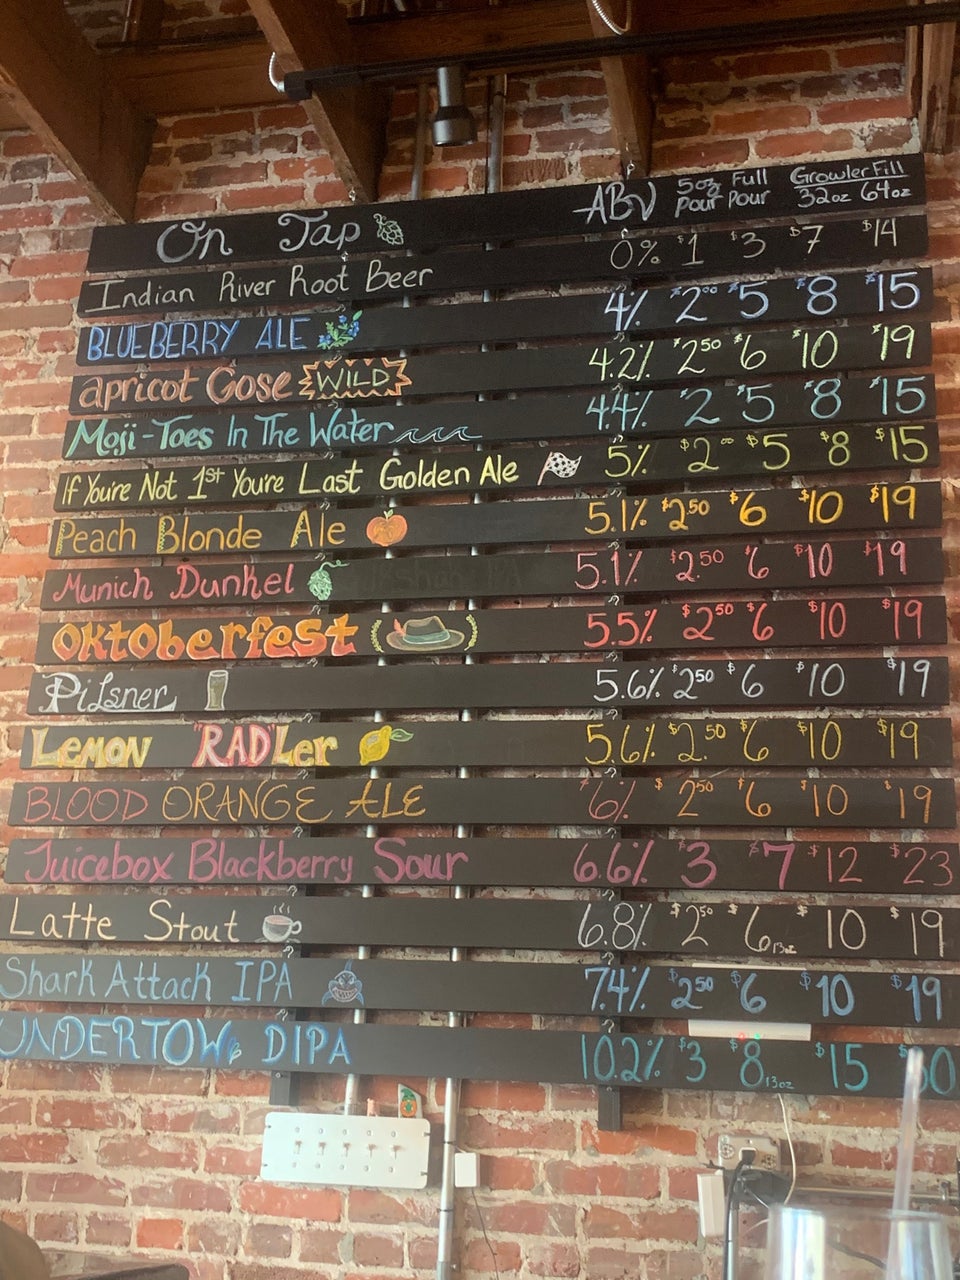 On Tap ABV 5oz Pour Full Pour Growler Fill 32oz 64oz
Indian River Root Beer 0% $1 $3 $7 $14
BLUEBERRY ALE 4% $2⁰⁰ $5 $8 $15
apricot Gose WILD 4.2% $2⁵⁰ $6 $10 $19
Moji-Toes In The Water 4.4% $2 $5 $8 $15
If You're Not 1st You're Last Golden Ale 5% $2⁰⁰ $5 $8 $15
Peach Blonde Ale 5.1% $2⁵⁰ $6 $10 $19
Munich Dunkel 5.1% $2⁵⁰ $6 $10 $19
Oktoberfest 5.5% $2⁵⁰ $6 $10 $19
Pilsner 5.6% $2⁵⁰ $6 $10 $19
Lemon "RAD"Ler 5.6% $2⁵⁰ $6 $10 $19
BLOOD ORANGE ALE 6% $2⁵⁰ $6 $10 $19
Juicebox Blackberry Sour 6.6% $3 $7 $12 $23
Latte Stout 6.8% $2⁵⁰ $6 13oz $10 $19
Shark Attack IPA 7.4% $2⁵⁰ $6 $10 $19
UNDERTOW DIPA 10.2% $3 $8 13oz $15